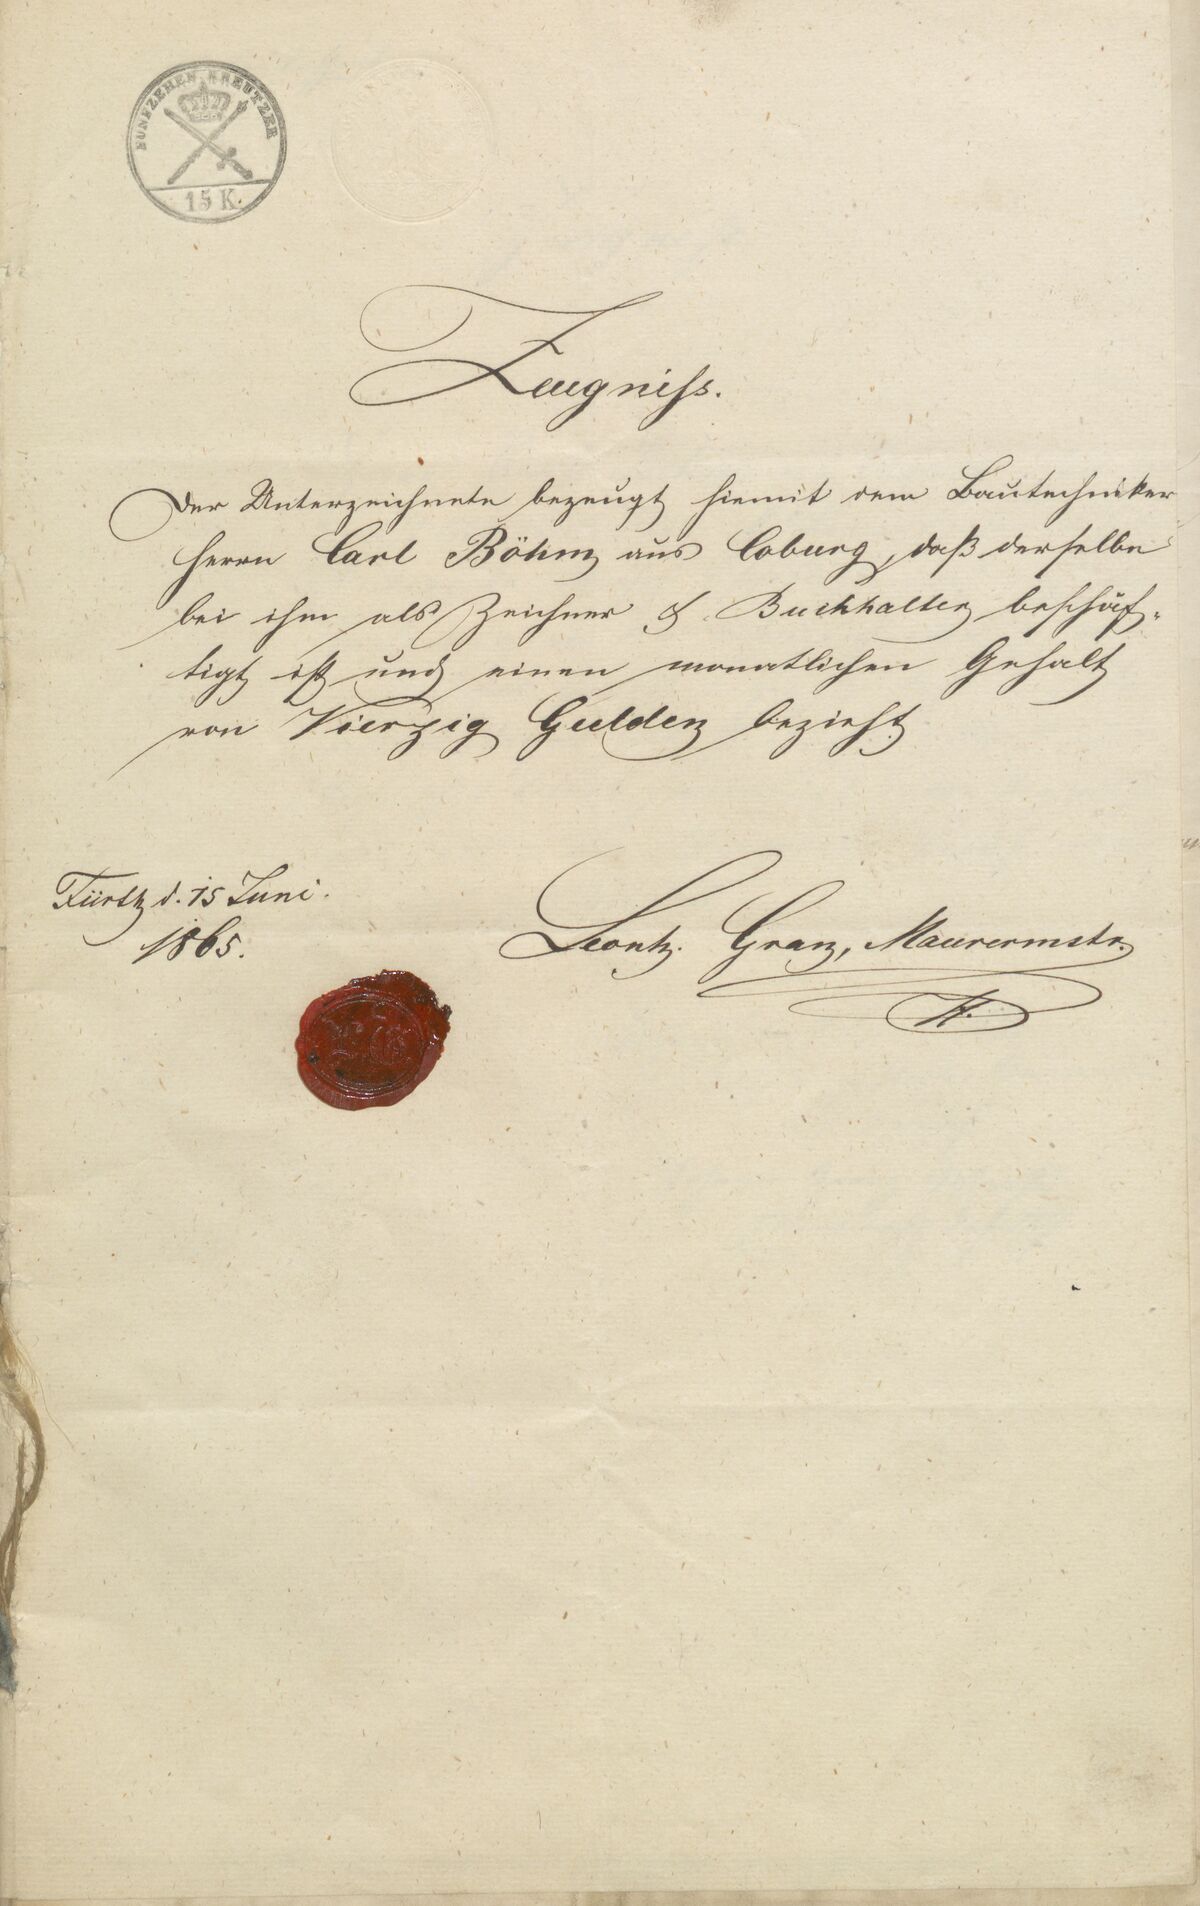 FUNFZEHEN KREUTZER
15 K.
Zeugniss.
Der Unterzeichnete bezeugt hiemit dem Bautechniker
Herrn Carl Böhm aus Coburg, daß derselbe
bei ihm als Zeichner & Buchhalter beschäf-
tigt ist und einen monatlichen Gehalt
von Vierzig Gulden bezieht
Fürth d. 15 Juni.
1865.
Gran, Maurermstr.